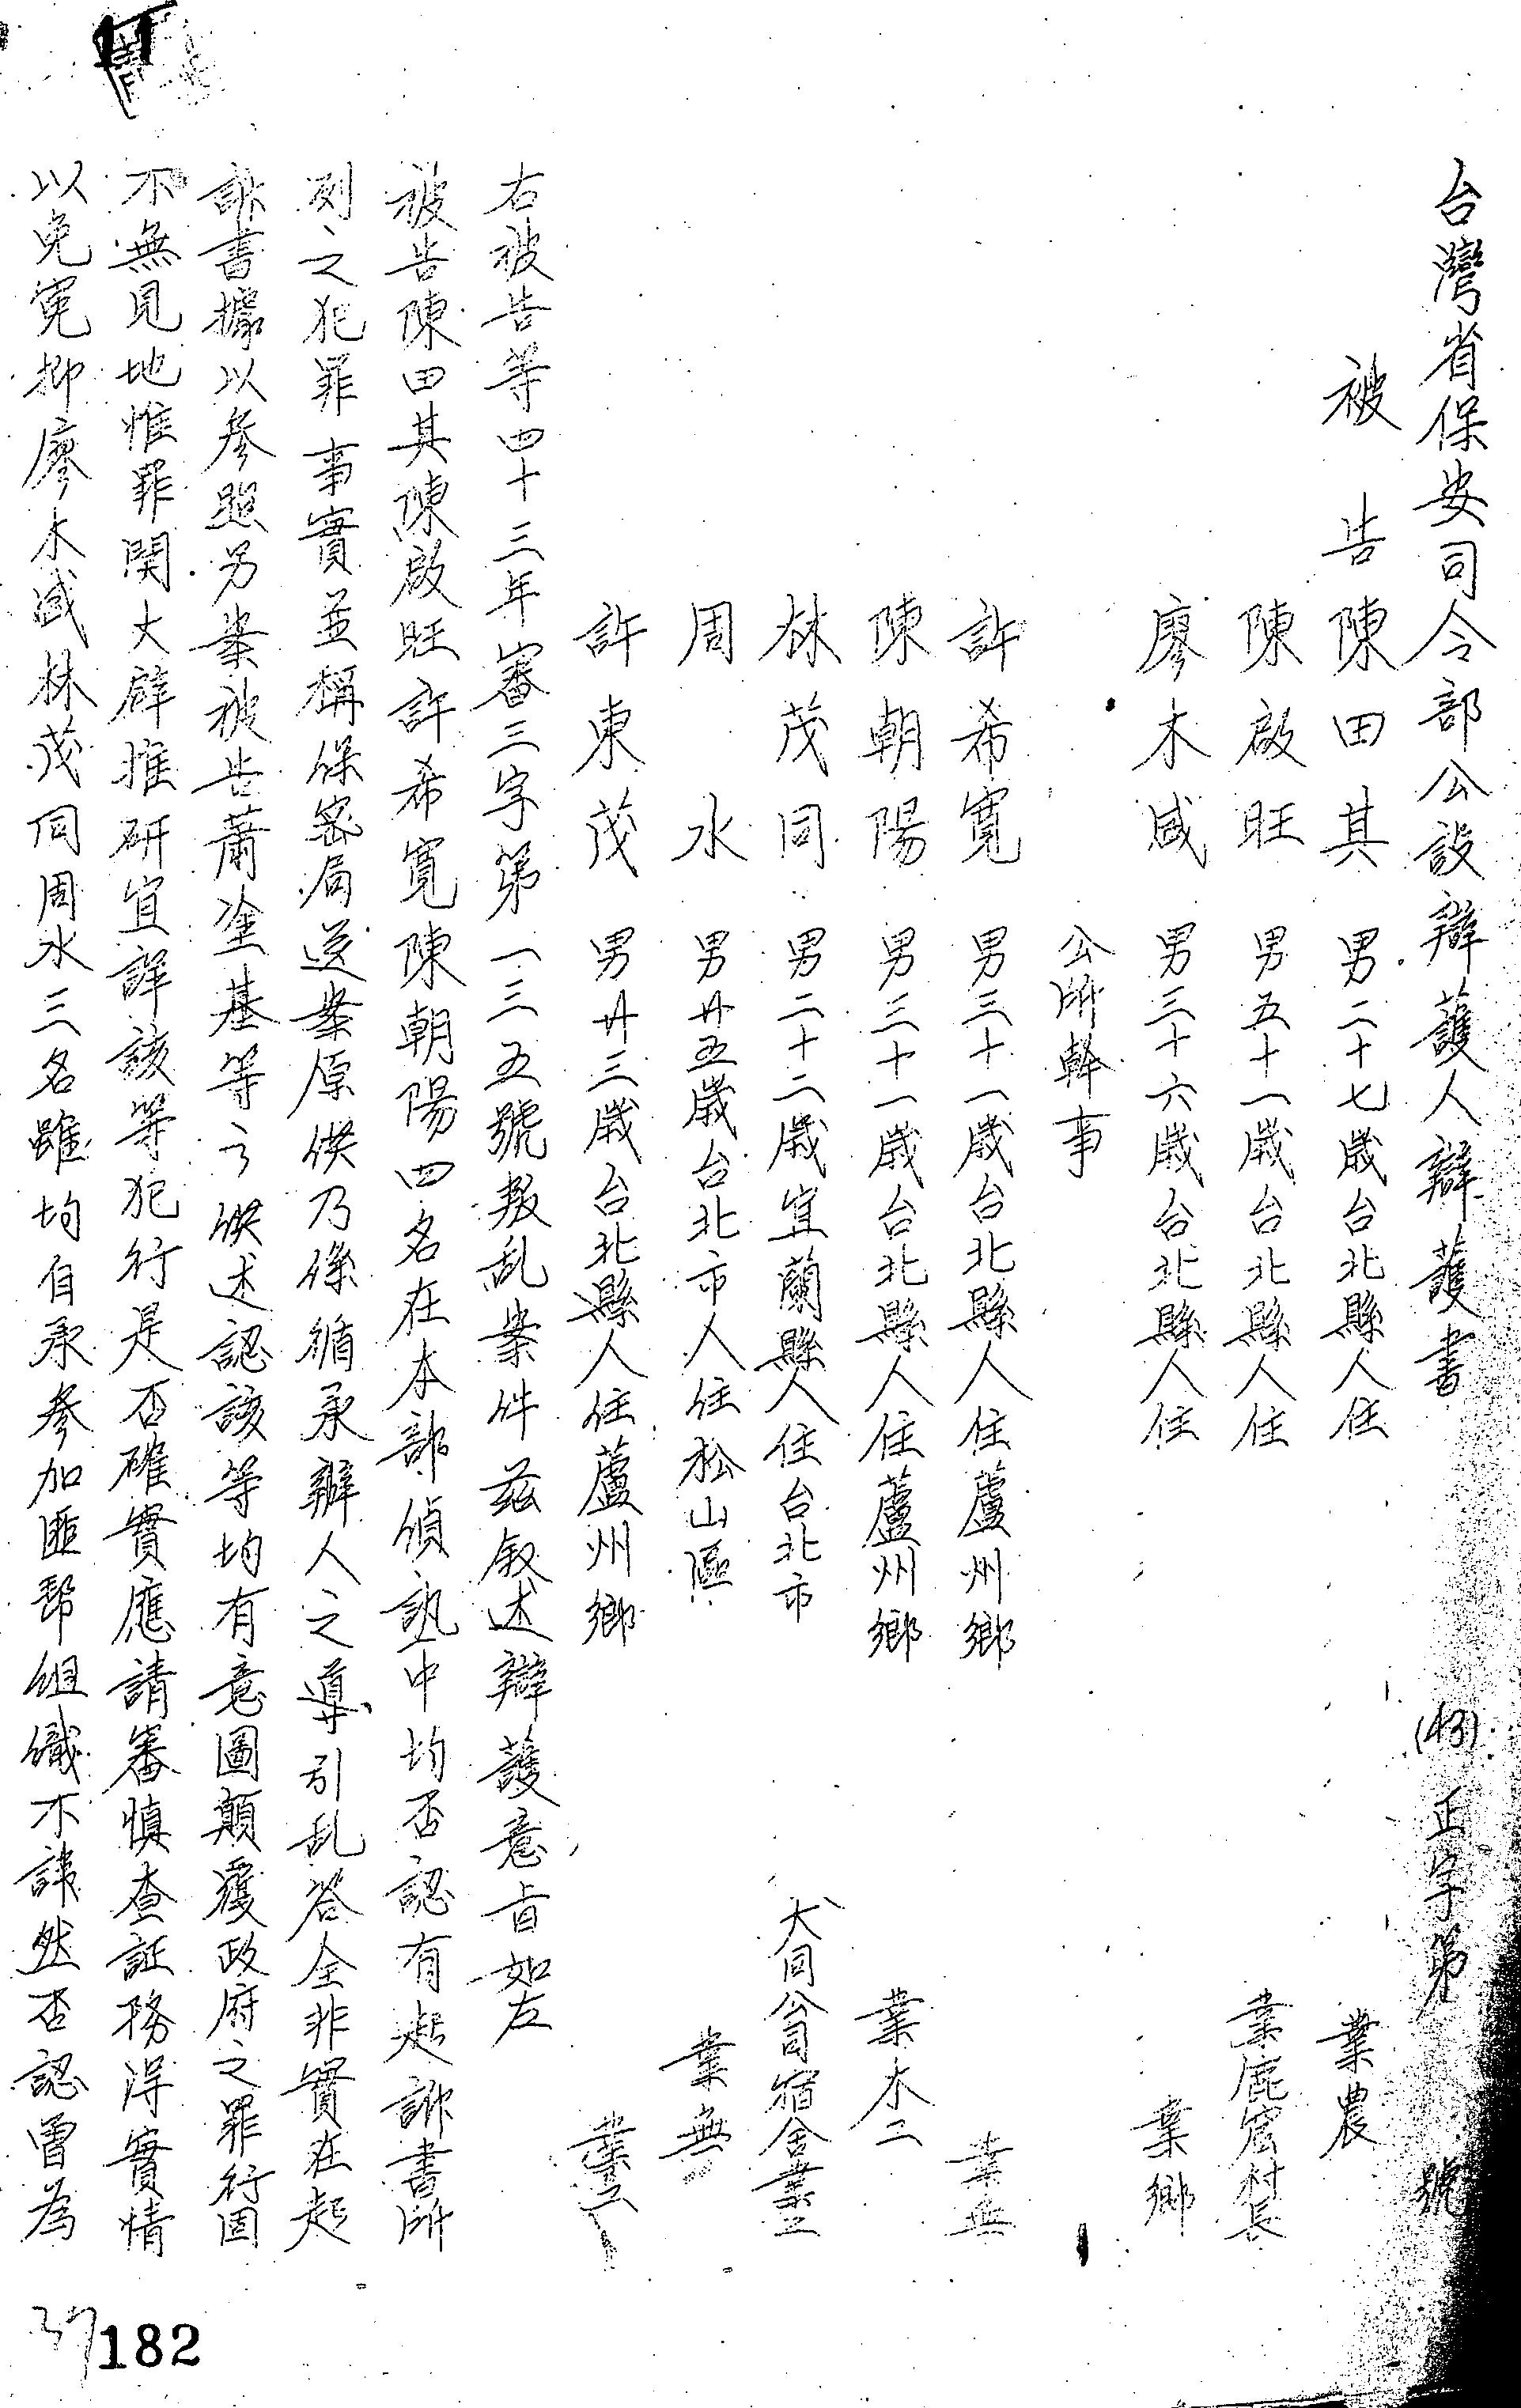 台灣省保安司令部公設辯護人辯護書 (43)正字第 號
被告 陳田其 男二十七歲台北縣人住 業農
陳啟旺 男五十一歲台北縣人住 業鹿窟村長
廖木盛 男三十六歲台北縣人住 業鄉
公所幹事
許希寬 男三十一歲台北縣人住蘆州鄉 業無
陳朝陽 男三十一歲台北縣人住蘆州鄉 業木工
林茂同 男二十二歲宜蘭縣人住台北市大同公司宿舍業工
周水 男廿五歲台北市人住松山區 業無
許東茂 男廿三歲台北縣人住蘆州鄉 業工
右被告等四十三年審三字第一三五號叛乱案件茲叙述辯護意旨如左
被告陳田其陳啟旺許希寬陳朝陽四名在本部偵訊中均否認有起訴書所
列之犯罪事實並稱保密局送案原供乃係循承辦人之導引乱答全非實在起
訴書據以參照另案被告蕭塗基等之供述認該等均有意圖顛覆政府之罪行固
不無見地惟罪関大辟推研宜詳該等犯行是否確實應請審慎查証務得實情
以免冤抑廖木盛林茂同周水三名雖均自承參加匪幇組織不諱然否認曾為
182